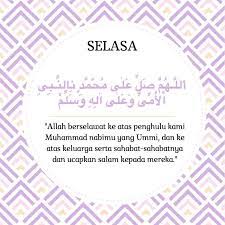 SELASA
اَللّٰهُمَّ صَلِّ عَلَى مُحَمَّدٍ نِالنَّبِىِّ
الْأُمِّىِّ وَعَلَى آلِهِ وَسَلِّمْ
"Allah berselawat ke atas penghulu kami
Muhammad nabimu yang Ummi, dan ke
atas keluarga serta sahabat-sahabatnya
dan ucapkan salam kepada mereka."